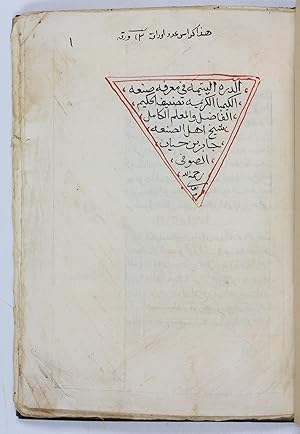 هذا كراس عدد اوراقه ورقه
١
الدره اليتيمه في معرفه صنعه
الكيميا الكريمه تصنيف الحكيم
الفاضل والمعلم الكامل
شيخ اهل الصنعه
جابر بن حيان
الصوفي
رحمه الله